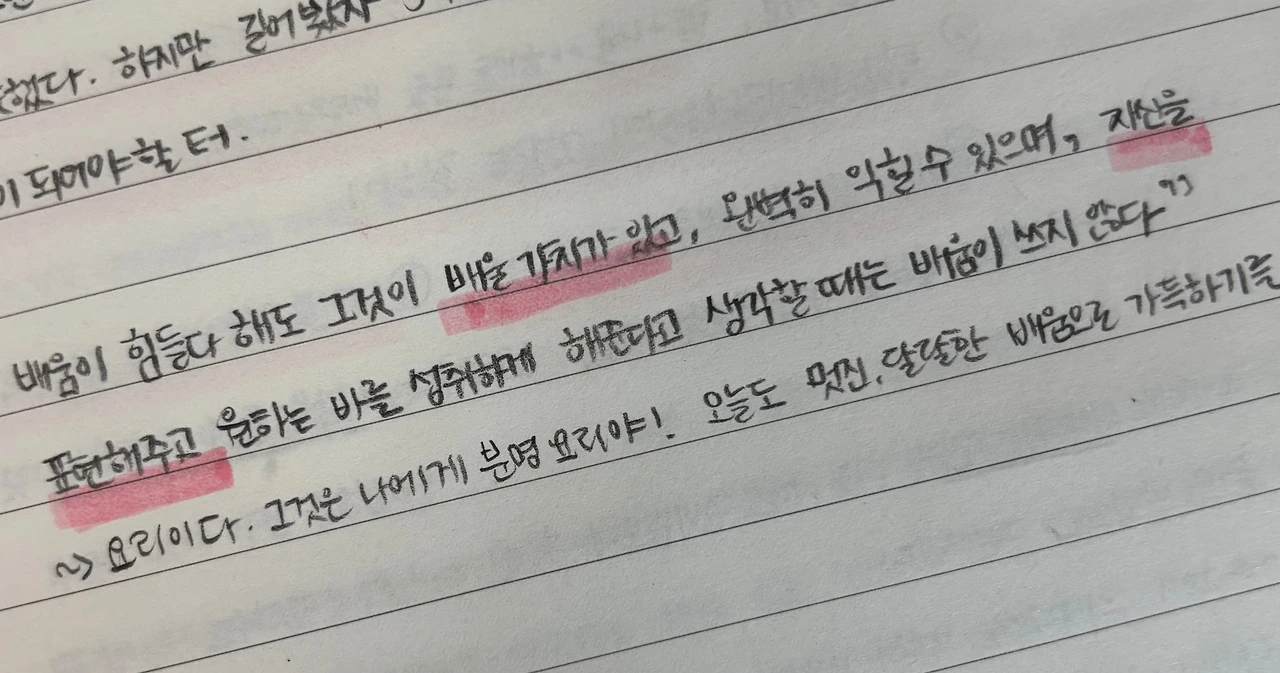 했다. 하지만 길어봤자
이 되어야 할 터.
배움이 힘들다 해도 그것이 배울 가치가 있고, 완벽히 익힐 수 있으며, 자신을
표현해주고 원하는 바를 성취하게 해준다고 생각할 때는 배움이 쓰지 않다"
~> 요리이다. 그것은 나에게 분명 요리야!. 오늘도 멋진, 달달한 배움으로 가득하기를